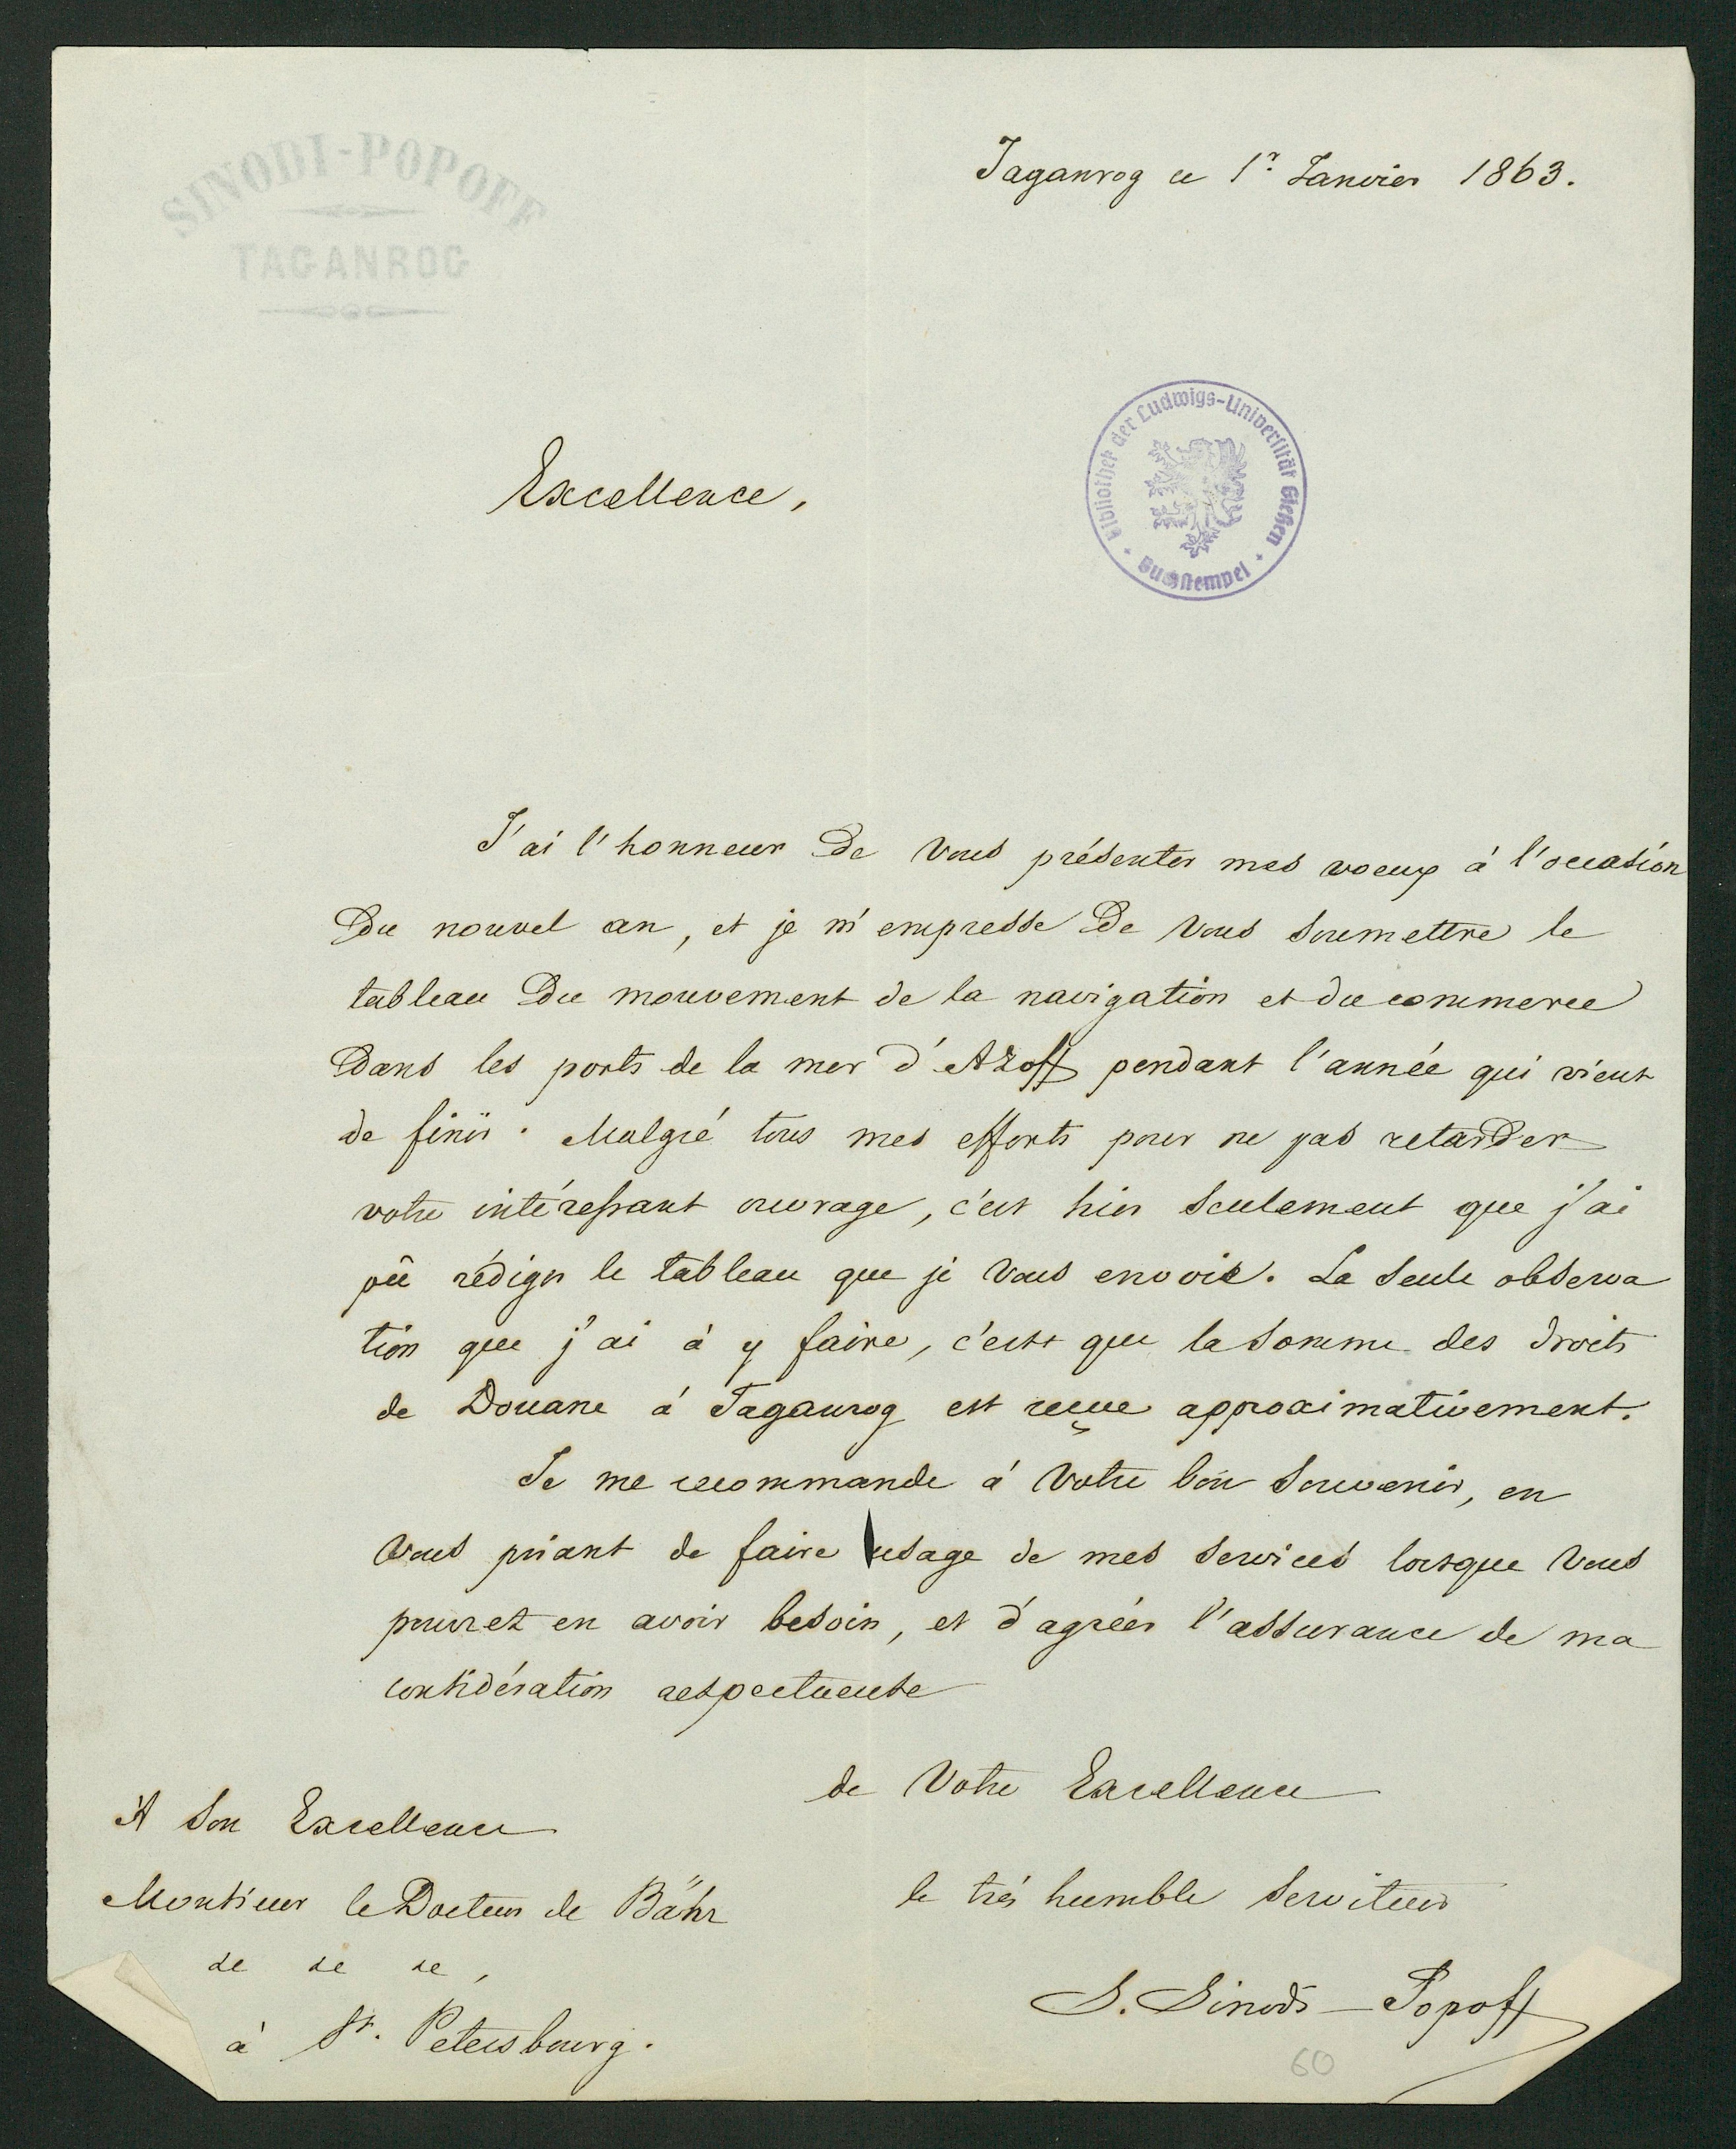 SINODI-POPOFF
TAGANROG
Taganrog ce 1r Janvier 1863.
Bibliothek der Ludwigs-Universität Gießen
Buchstempel
Excellence,
J'ai l'honneur de Vous présenter mes voeux à l'occasion
du nouvel an, et je m'empresse de Vous soumettre le
tableau du mouvement de la navigation et du commerce
dans les ports de la mer d'Azoff pendant l'année qui vient
de finir. Malgré tous mes efforts pour ne pas retarder
votre intéressant ouvrage, c'est hier seulement que j'ai
pû rédiger le tableau que je Vous envoie. La seule observa
tion que j'ai à y faire, c'est que la somme des droits
de Douane à Taganrog est reçue approximativement.
Je me recommande à Votre bon souvenir, en
Vous priant de faire usage de mes services lorsque Vous
pouvez en avoir besoin, et d'agréer l'assurance de ma
considération respectueuse
de Votre Excellence
A Son Excellence
Monsieur le Docteur de Bähr
le très humble serviteur
à St. Petersbourg.
S. Sinodi-Popoff
60